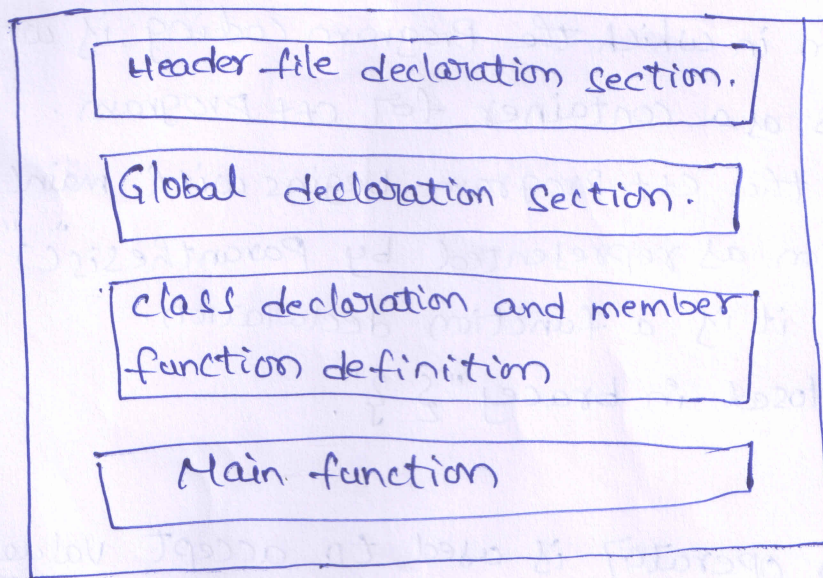 Header file declaration section.
Global declaration section.
class declaration and member
function definition
Main function